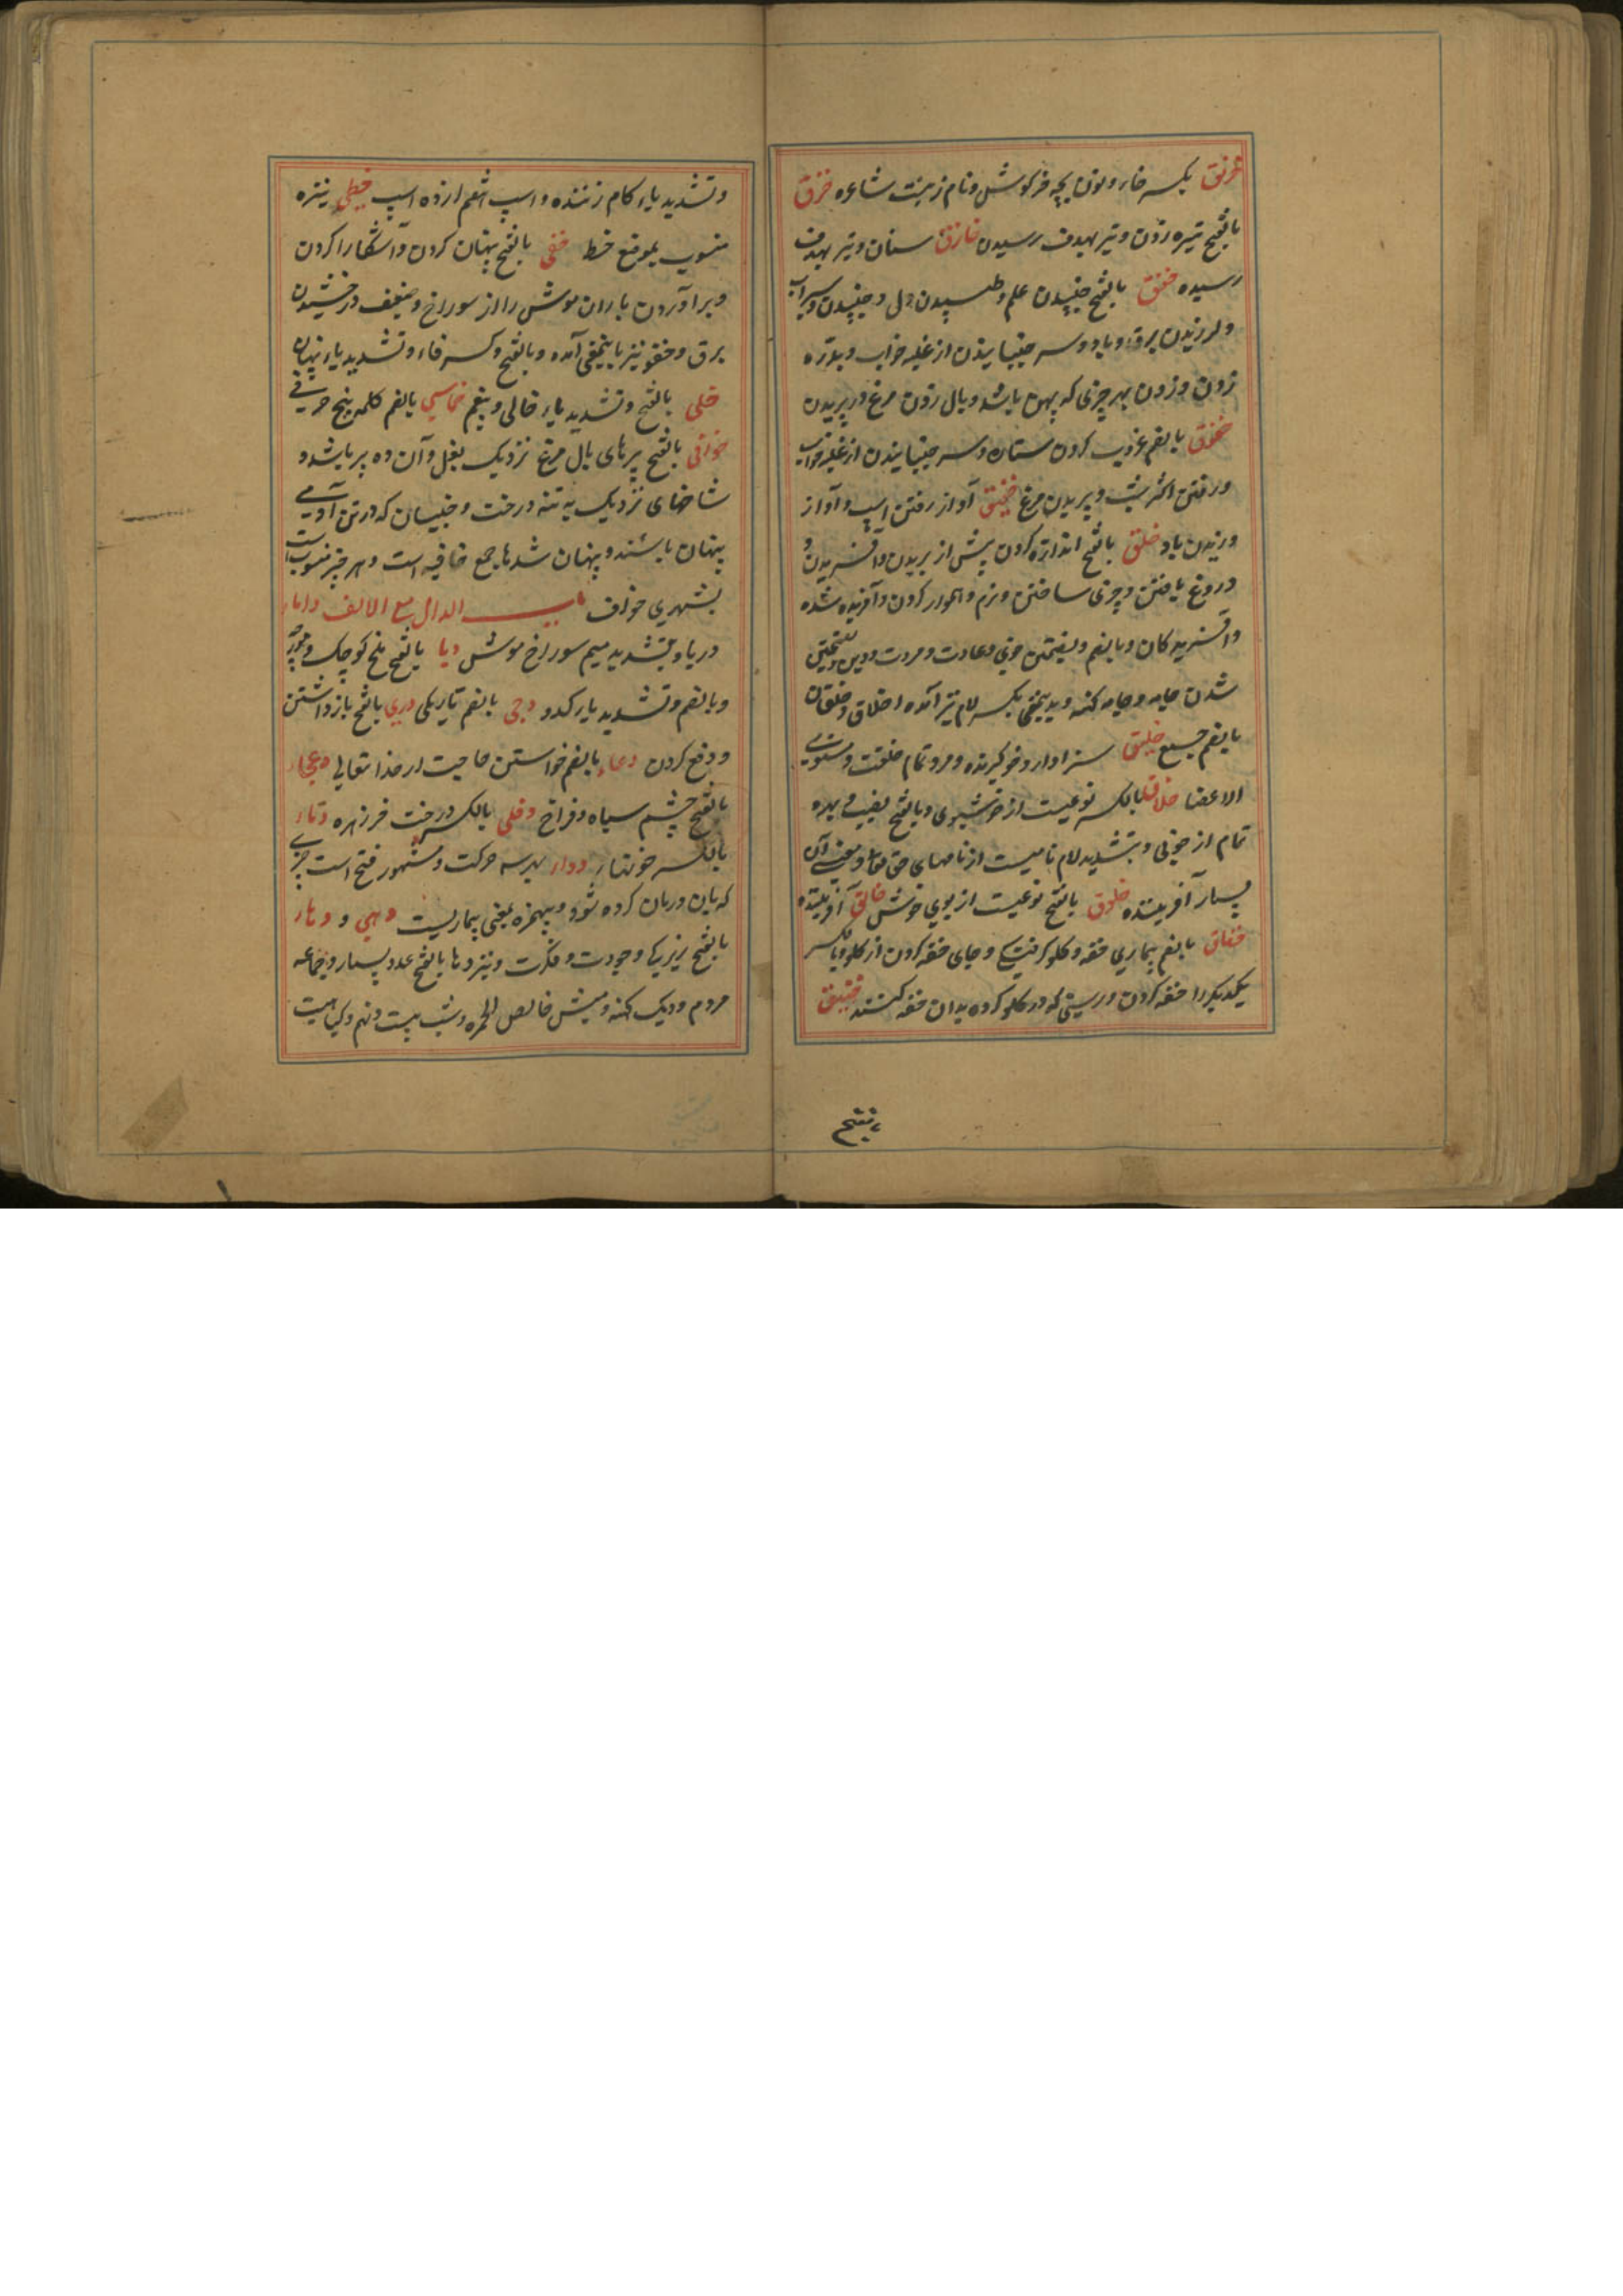 خرنق بکسر خاء و نون بچه خرگوش و نام زینت شاعره خزق
بالفتح نیزه زدن و تیر بهدف رسیدن خازق سنان و تیر بهدف
رسیده خفق بالفتح جنبیدن علم و طپیدن دل و جنبیدن سراب
و لرزیدن برق و باد و سر جنبانیدن از غلبه خواب و بدره
زدن و زدن بهر چیزی که پهن باشد و بال زدن مرغ در پریدن
خفوق بالضم غروب کردن ستاره و سر جنبانیدن از غلبه خواب
و رفتن اکثر شب و پریدن مرغ خفیق آواز رفتن اسپ و آواز
وزیدن باد خلق بالفتح اندازه کردن پیش از بریدن و آفریدن و
دروغ بافتن و چیزی ساختن و نرم و هموار کردن و آفریده شده
و آفریدگان و بالضم و بضمتین خوی و عادت و مروت و دین و بفتحتین
شدن جامه و جامه کهنه و بدینمعنی بکسر لام نیز آمده اخلاق و خلقان
بالضم جمع خلیق سزاوار و خوگیرنده و مرد تمام خلقت و مستوی
الاعضا خلاق بالکسر نوعیست از خوشبوی و بالفتح نصیب و بهره
تمام از خوبی و بتشدید لام نامیست از نامهای حق تعالی و معنی آن
بسیار آفریننده خلوق بالفتح نوعیست از بوی خوش خالق آفریننده
خناق بالضم بیماری خفه و گلو گرفتگی و جای خفه کردن از گلو و بالکسر
یکدیگر را خفه کردن و ریسنی که در گلو کرده بدان خفه کنند خنیق
بفتح
و تشدید یاء کام زننده و اسپ خطی نیزه
منسوب بموضع خط خفی بالفتح پنهان کردن و آشکارا کردن
و برآوردن باران موش را از سوراخ و ضعیف درخشیدن
برق و خفو نیز باینمعنی آمده و بالفتح و کسر فاء و تشدید یاء پنهان
خلی بالفتح و تشدید یاء خالی و بیغم خماسی بالضم کلمه پنج حرفی
خوافی بالفتح پرهای بال مرغ نزدیک بغل و آن ده پر باشد و
شاخهای نزدیک به تنه درخت و جنیان که در تن آدمی
پنهان باشند و پنهان شدها جمع خافیه است و هر چیز منسوب است
بشهری خواف باب الدال مع الالف داماء
دریا و بتشدید میم سوراخ موش دبا بالفتح ملخ کوچک و مور
و بالضم و تشدید باء کدو دجی بالضم تاریکی دری بالفتح بازداشتن
و دفع کردن دعاء بالضم خواستن حاجت از خدا تعالی دعجاء
بالفتح چشم سیاه و فراخ دفلی بالکسر درخت خرزهره دماء
بالکسر خونها دواء بهر سه حرکت و مشهور فتح است چیزی
که بآن درمان کرده شود و بهمزه بمعنی بیماریست دهی و دهاء
بالفتح زیرکی و جودت و فکرت و نیز دها بالفتح عدد بسیار و جماعه
مردم و دیک کهنه و میش خالص الحمره و شب بیست و نهم و گیاهیست